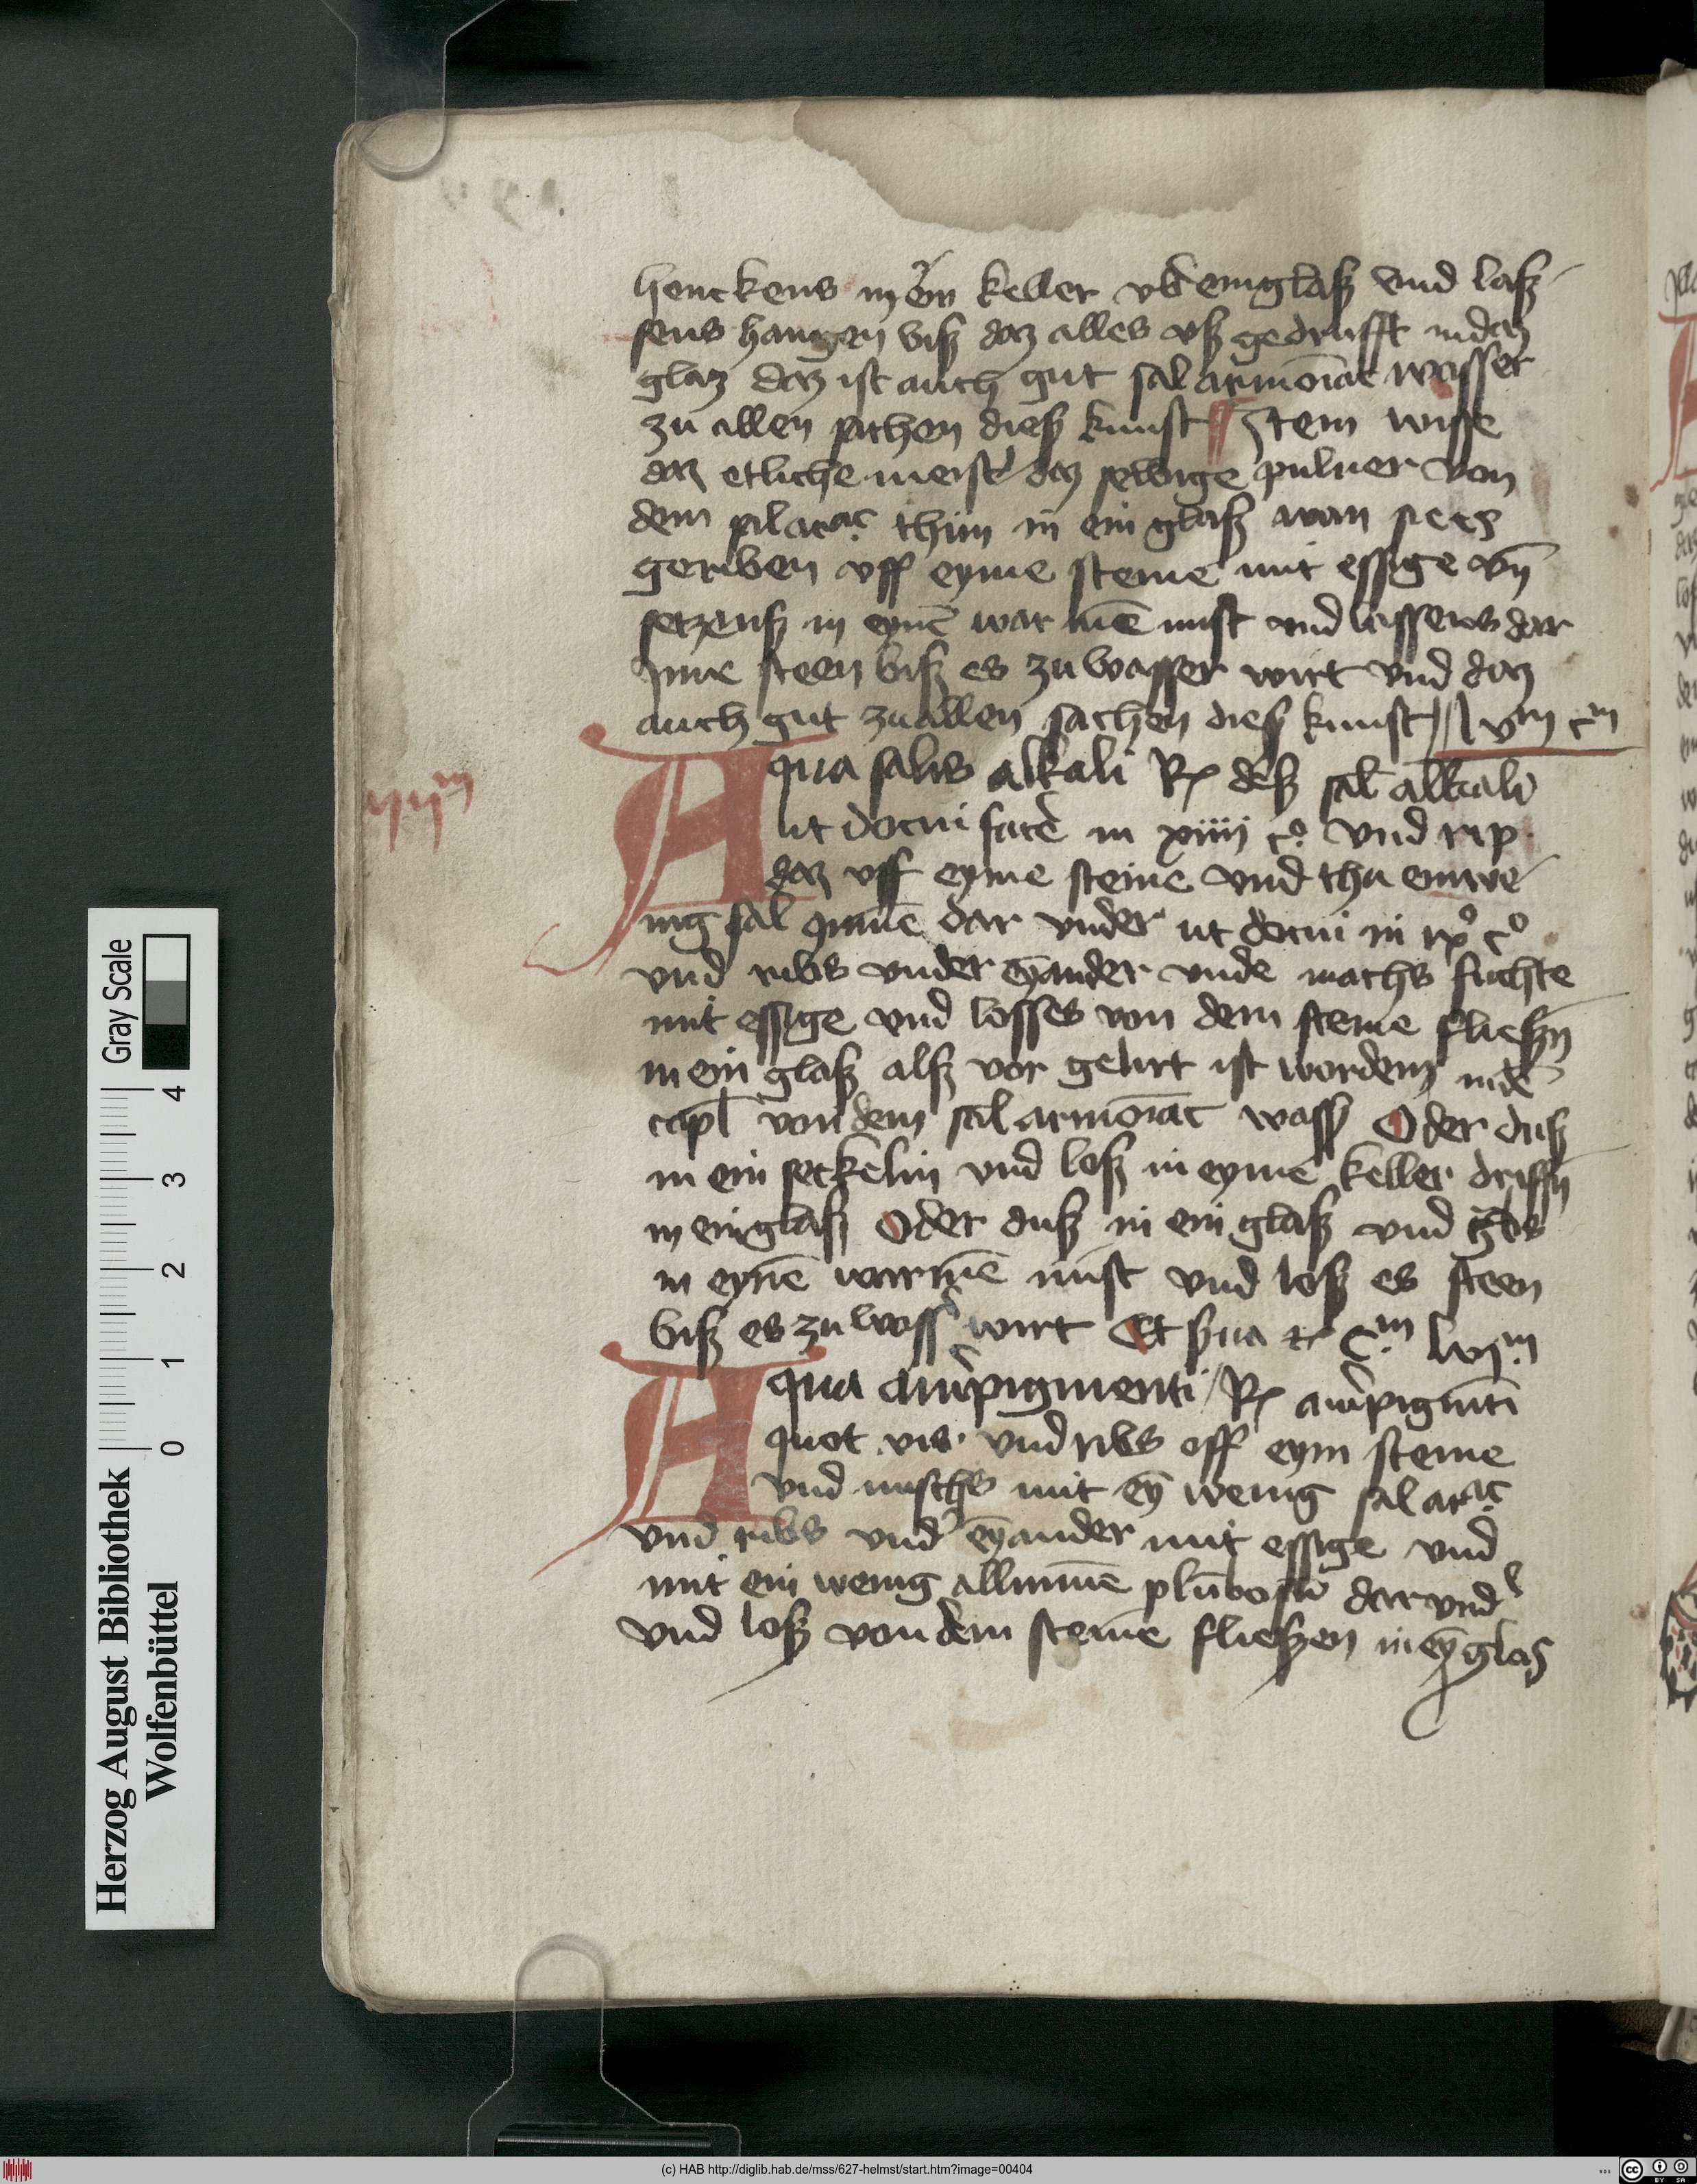 henckens in ein keller vb̄ ein glaß vnd laß
sens hangen biß daz alles vß gedrufft in daz
glaz daz ist auch gut sal armōiac wasser
zu allen sachen dieß kunst ¶ Item wisse
daz etliche meist' daz selbige puluer von
dem sal arac thun in ein glaß wan sie es
geriben vff eyme steine mit essige vn̄
setzens in eynē warmē mist vnd lassens dar
Inne steen biß es zu wasser wirt vnd daz
auch gut zu allen sachen dieß kunst // vm cm
Aqua salis alkali Rx deß sal alkali
ut docui facē in xiiii co vnd rip
daz vff eyme steine vnd thu ein we
nig sal gēme dar vnder ut docui in co
vnd ribs vnder eȳander vnde machs fuchte
mit essige vnd losses von dem steine fließn̄
in ein glaß alß vor gelirt ist worden in dē
capl von dem sal armōiac wass' Oder duß
in ein seckelin vnd loß in eyme keller driffn̄
in ein glaß Oder duß in ein glaß vnd g̾bs
in eynē warmē mist vnd loß es steen
biß es zu woss' wirt Et s̄ua cm lvim
Aqua aurīpigmenti / Rx aurīpigm̄ti
quot vis vnd ribs off eym steine
vnd mischs mit eȳ wenig sal arac
vnd ribs vnd' eȳander mit essige vnd
mit ein wenig allumē plūbosū dar vnd'
vnd loß von dem steine fließen in eȳ glas
Gray Scale
0 1 2 3 4
Herzog August Bibliothek
Wolfenbüttel
(c) HAB http://diglib.hab.de/mss/627-helmst/start.htm?image=00404
cc BY SA